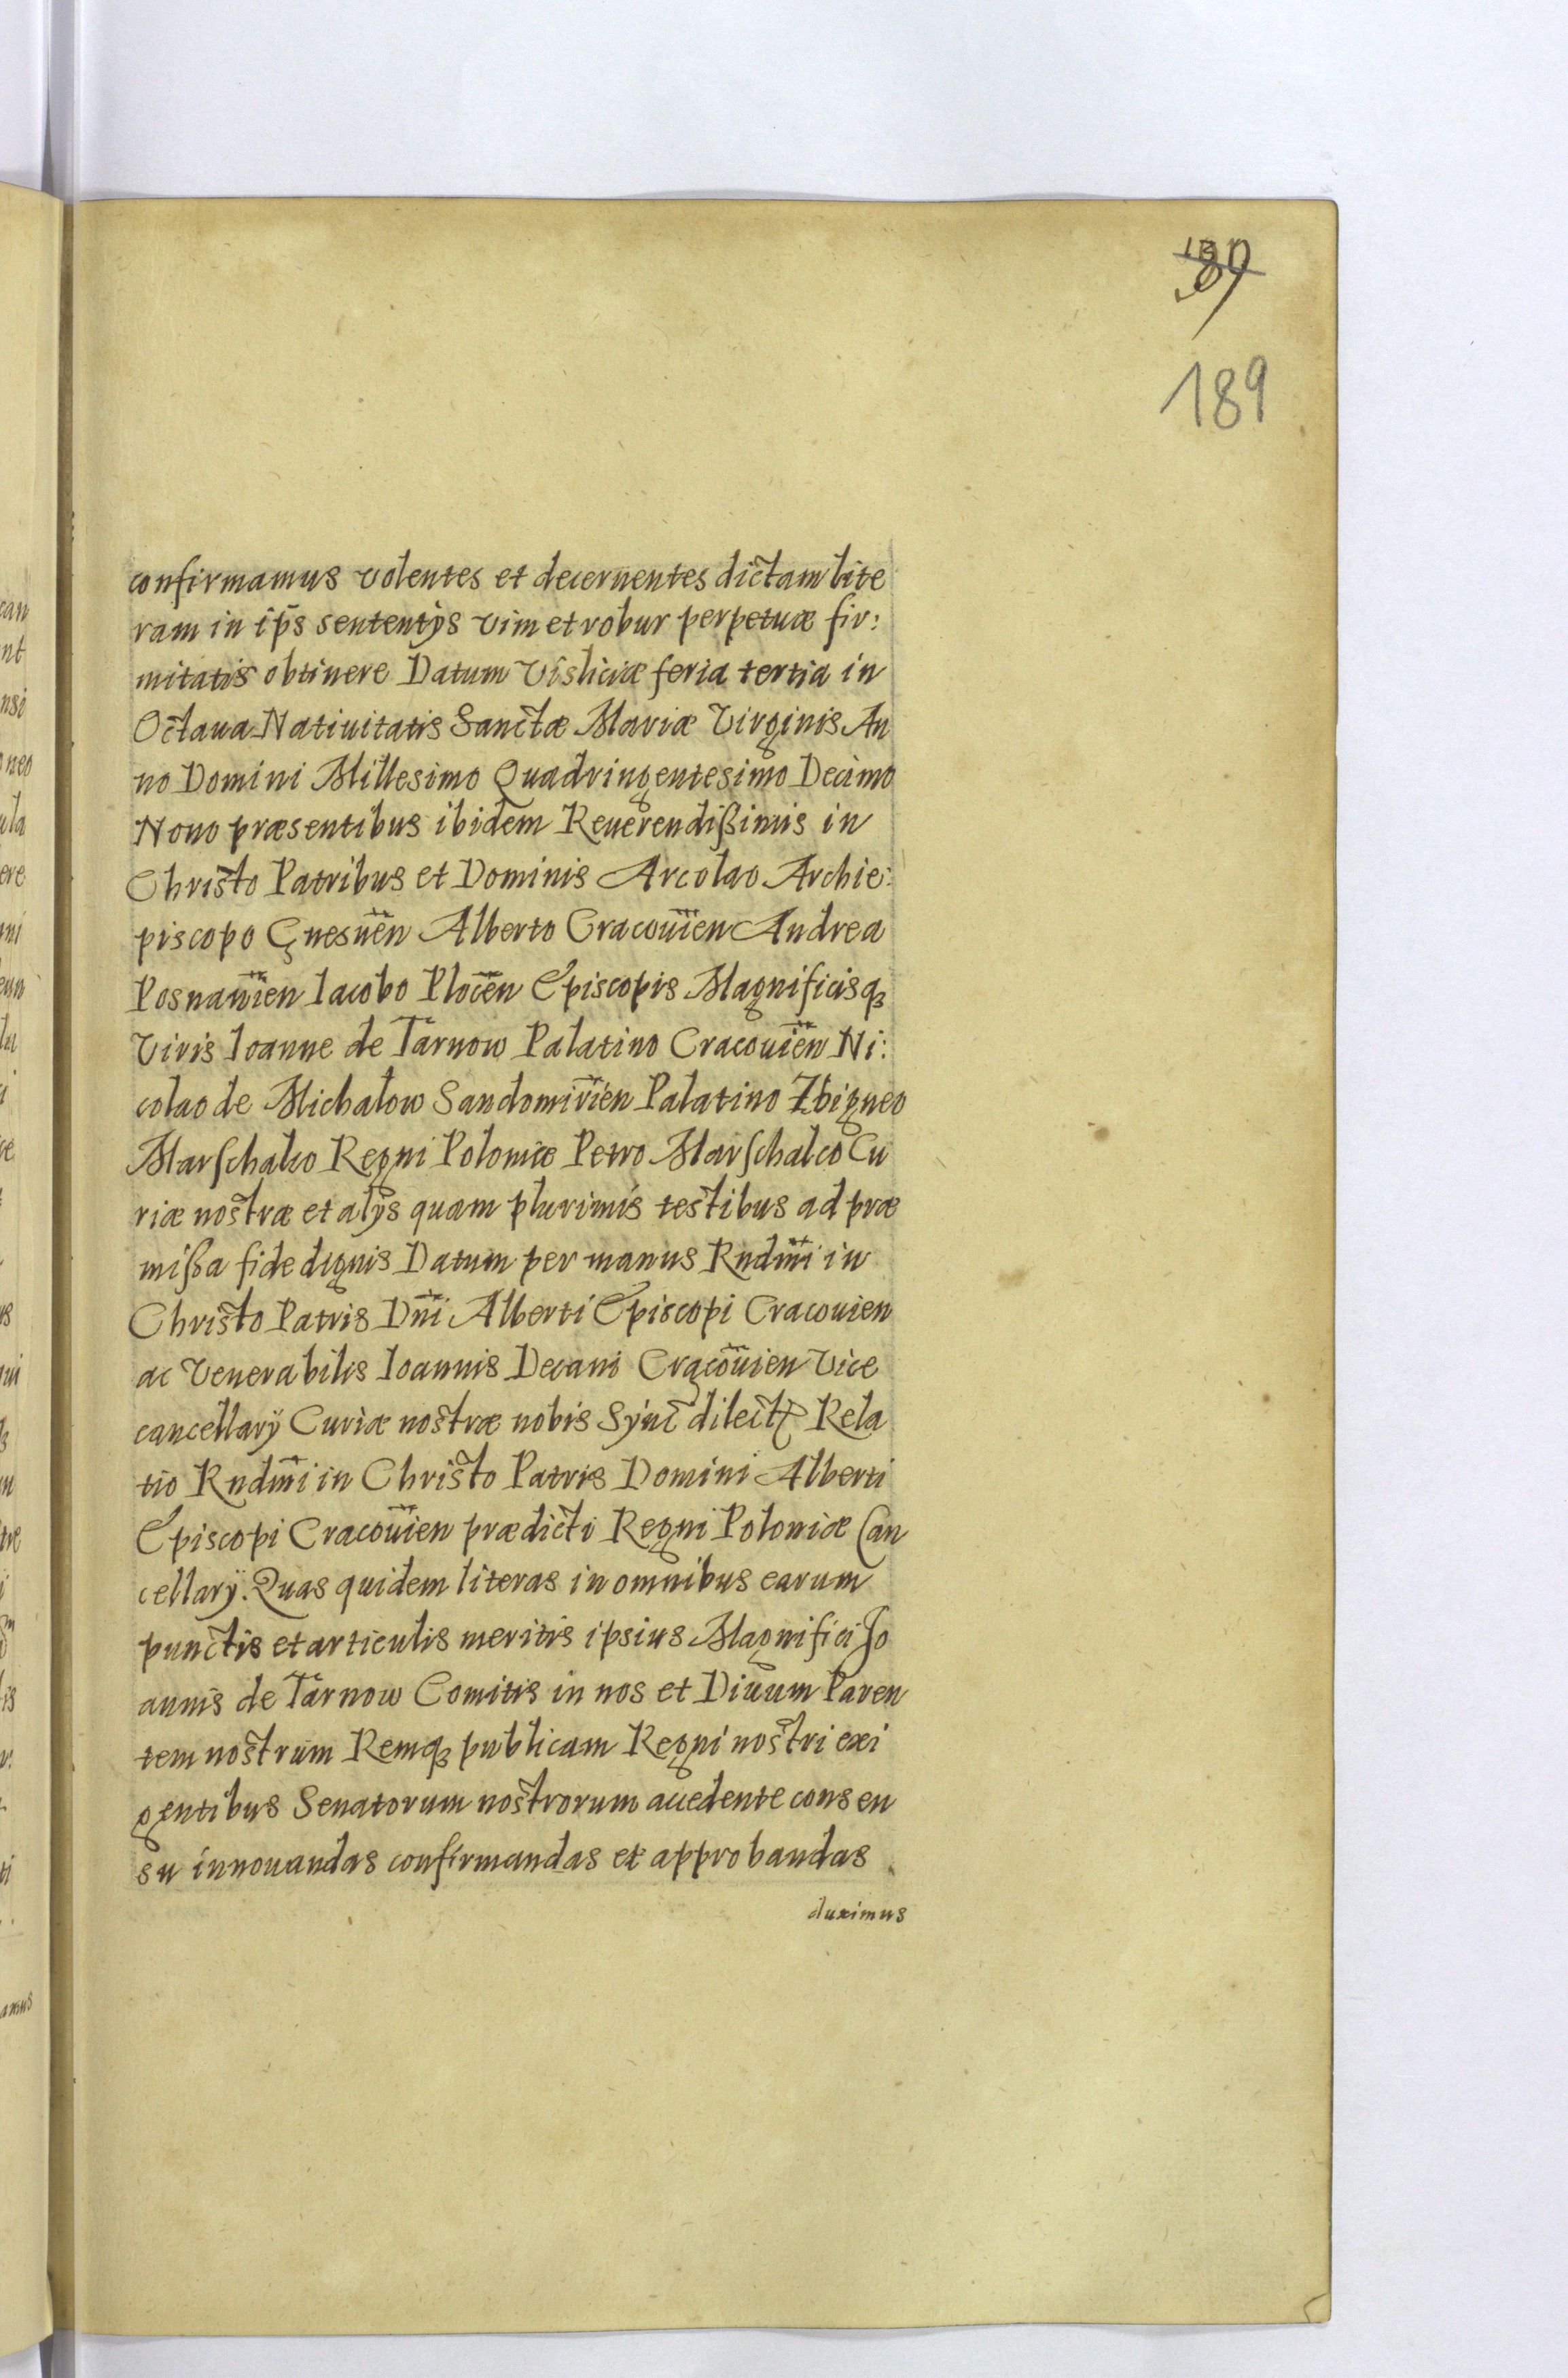 189
confirmamus volentes et decernentes dictam lite
ram in ip̄s sententijs vim et robur perpetuæ fir:
mitatis obtinere Datum Visliciæ feria tertia in
Octaua Natiuitatis Sanctæ Mariæ Virginis An
no Domini Millesimo Quadringentesimo Decimo
Nono præsentibus ibidem Reuerendißimis in
Christo Patribus et Dominis Arcolao Archie:
piscopo Gnesnen̄ Alberto Cracouien̄ Andrea
Posnanien̄ Iacobo Plocen̄ Episcopis Magnificisq₃
Viris Ioanne de Tarnow Palatino Cracouien̄ Ni:
colao de Michalow Sandomirien̄ Palatino Zbigneo
Marschalco Regni Poloniæ Petro Marschalco Cu
riæ nostræ et alijs quam plurimis testibus ad præ
mißa fide dignis Datum per manus Rndm̄i in
Christo Patris Dn̄i Alberti Episcopi Cracouien
ac Venerabilis Ioannis Decani Cracouien̄ Vice
cancellarÿ Curiæ nostræ nobis Sync̄ dilect Rela
tio Rndm̄i in Christo Patris Domini Alberti
Episcopi Cracouien̄ prædicti Regni Poloniæ Can
cellarÿ. Quas quidem literas in omnibus earum
punctis et articulis meritis ipsius Magnifici Jo
annis de Tarnow Comitis in nos et Diuum Paren
tem nostrum Remq₃ publicam Regni nostri exi
gentibus Senatorum nostrorum accedente consen
su innouandas confirmandas et approbandas
duximus